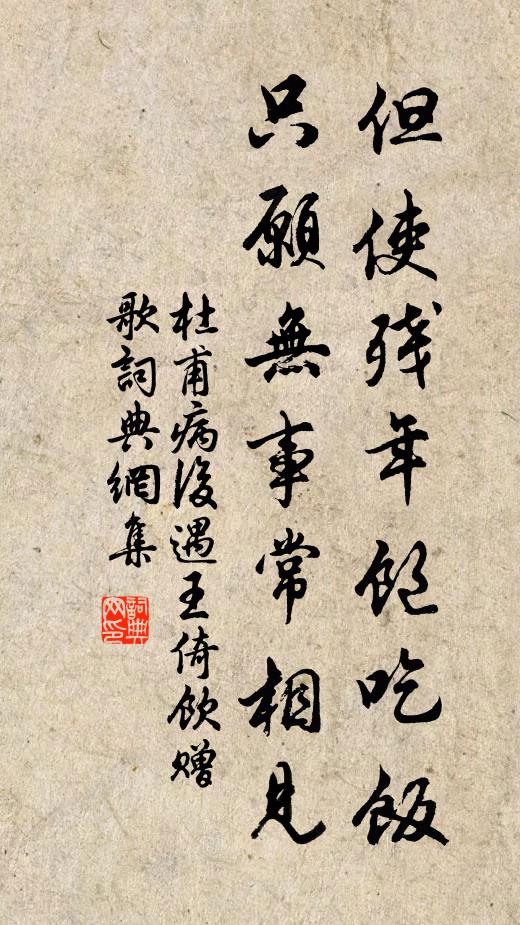 但使残年飽吃飯
只願無事常相見
杜甫病後遇王倚飲贈
歌詞典網集
詞典網印